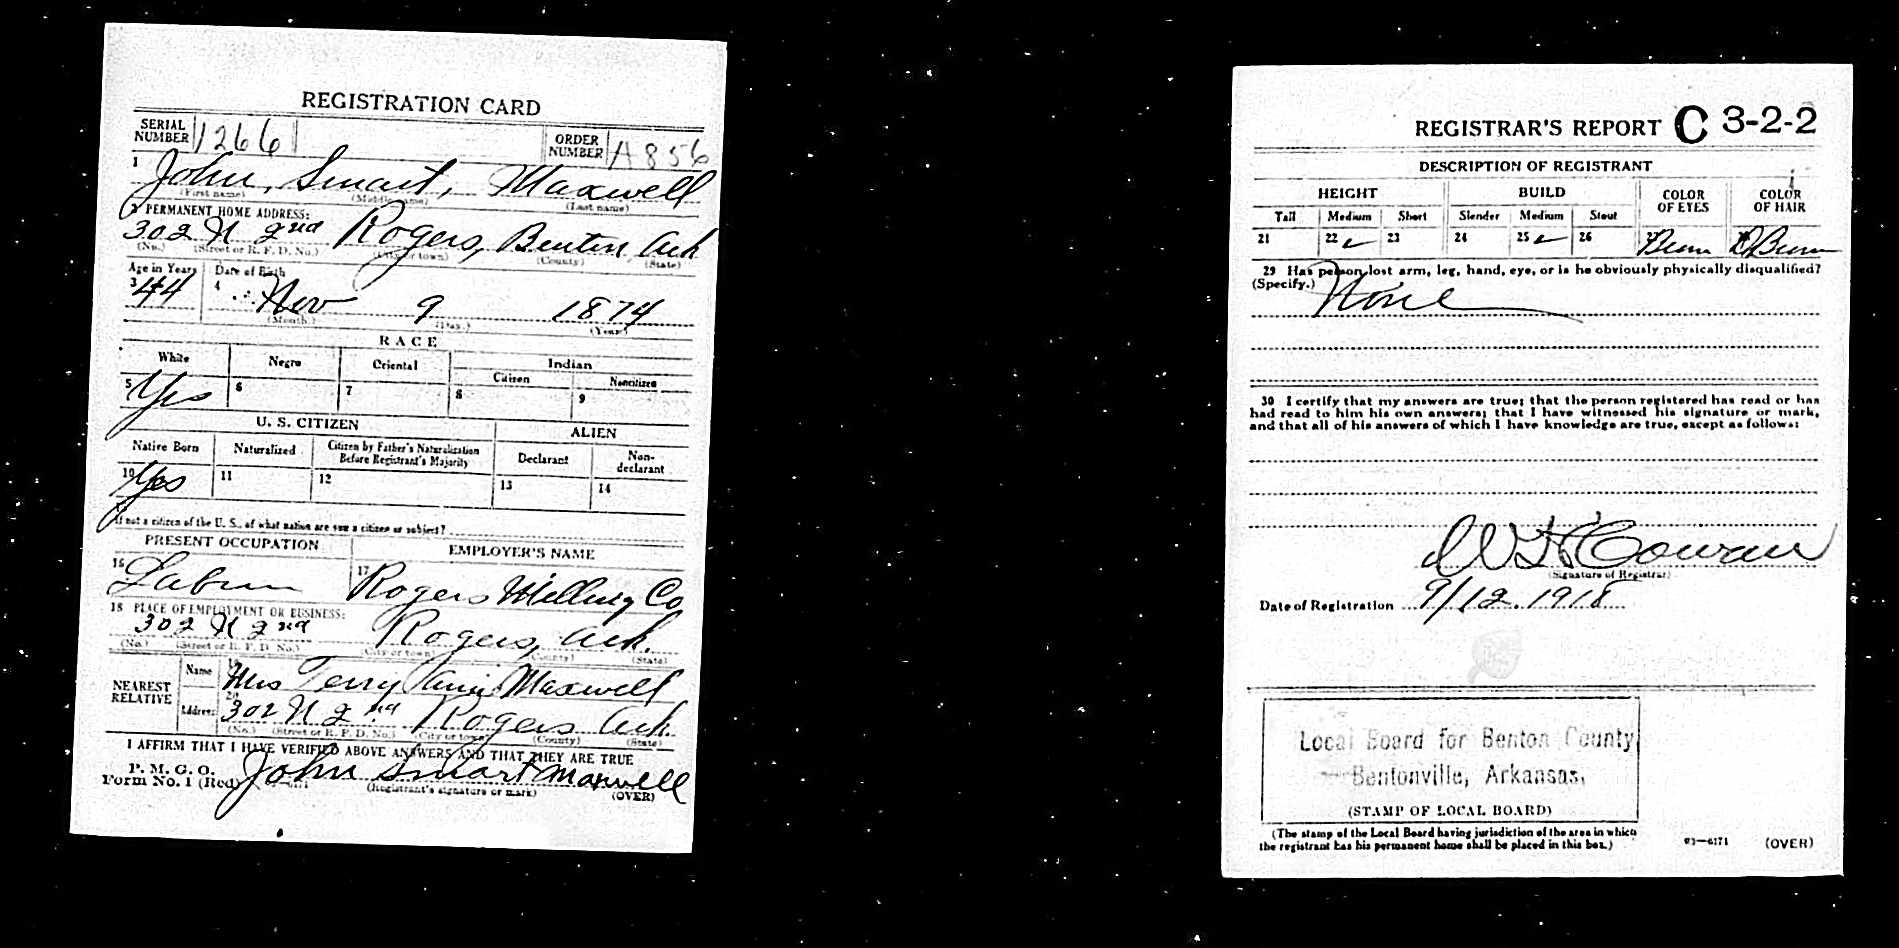 REGISTRATION CARD
SERIAL NUMBER 1266 ORDER NUMBER A856
1 John, Smart, Maxwell
(First name) (Middle name) (Last name)
2 PERMANENT HOME ADDRESS:
302 N 2nd Rogers, Benton Ark
(No.) (Street or R. F. D. No.) (City or town) (County) (State)
Age in Years Date of Birth
3 44 4 Nov 9 1874
(Month.) (Day.) (Year)
RACE
White Negro Oriental Indian
Citizen Noncitizen
5 Yes 6 7 8 9
U. S. CITIZEN ALIEN
Native Born Naturalized Citizen by Father's Naturalization Before Registrant's Majority Declarant Non-declarant
10 Yes 11 12 13 14
If not a citizen of the U. S., of what nation are you a citizen or subject?
PRESENT OCCUPATION EMPLOYER'S NAME
16 17 Rogers Milling Co
18 PLACE OF EMPLOYMENT OR BUSINESS:
302 N 2nd Rogers, Ark.
(No.) (Street or R. F. D. No.) (City or town) (County) (State)
NEAREST RELATIVE Name 19 Mrs Terry Maxwell
Address 20 302 N 2nd Rogers Ark.
(No.) (Street or R. F. D. No.) (City or town) (County) (State)
I AFFIRM THAT I HAVE VERIFIED ABOVE ANSWERS AND THAT THEY ARE TRUE
P. M. G. O.
Form No. 1 (Red) John Smart Maxwell
(Registrant's signature or mark) (OVER)
REGISTRAR'S REPORT C 3-2-2
DESCRIPTION OF REGISTRANT
HEIGHT BUILD COLOR OF EYES COLOR OF HAIR
Tall Medium Short Slender Medium Stout
21 22 23 24 25 26 27
29 Has person lost arm, leg, hand, eye, or is he obviously physically disqualified?
(Specify.) None
30 I certify that my answers are true; that the person registered has read or has
had read to him his own answers; that I have witnessed his signature or mark,
and that all of his answers of which I have knowledge are true, except as follows:
Cowan
(Signature of Registrar)
Date of Registration 9/12.1918
Local Board for Benton County
Bentonville, Arkansas,
(STAMP OF LOCAL BOARD)
(The stamp of the Local Board having jurisdiction of the area in which
the registrant has his permanent home shall be placed in this box.)
03—6171 (OVER)